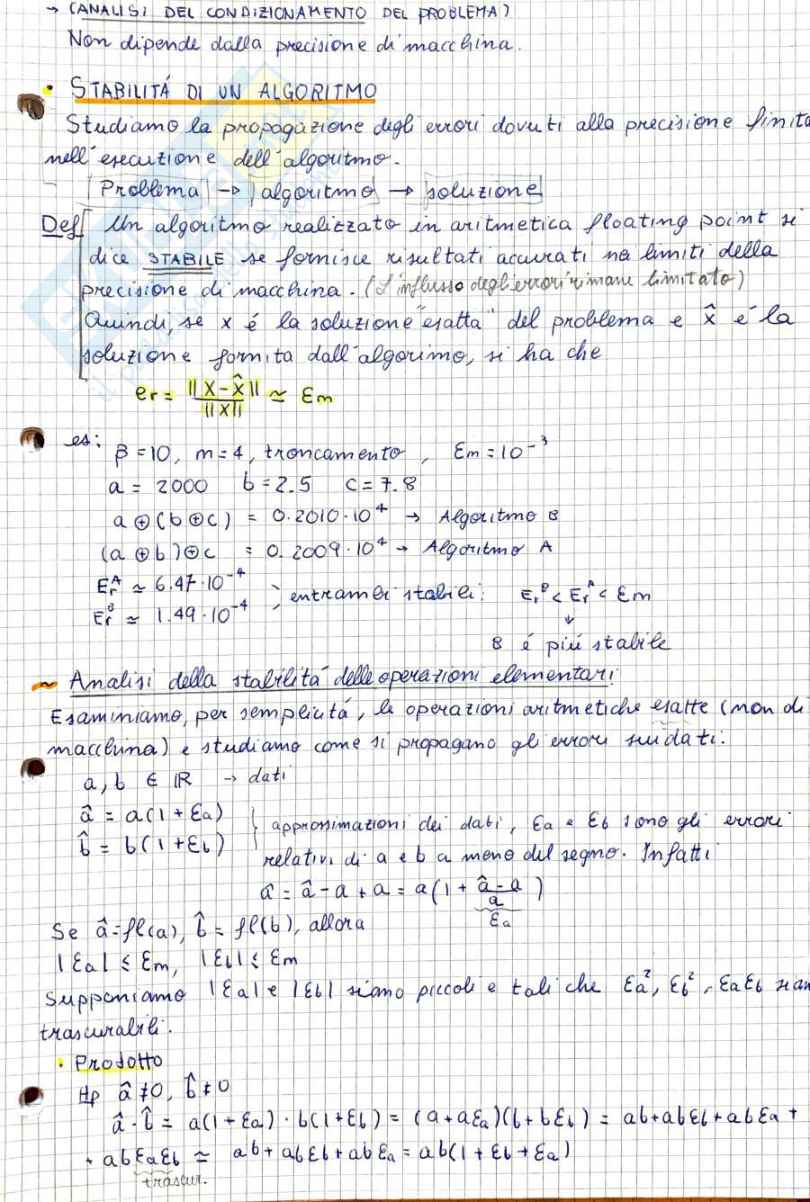 → (ANALISI DEL CONDIZIONAMENTO DEL PROBLEMA)
Non dipende dalla precisione di macchina.
• STABILITÁ DI UN ALGORITMO
Studiamo la propagazione degli errori dovuti alla precisione finita
nell'esecuzione dell'algoritmo.
Problema → algoritmo → soluzione
Def Un algoritmo realizzato in aritmetica floating point si
dice STABILE se fornisce risultati accurati nei limiti della
precisione di macchina. (L'influsso degli errori rimane limitato)
Quindi, se x é la soluzione "esatta" del problema e x̂ é la
soluzione fornita dall'algorimo, si ha che
er = ||x-x̂|| / ||x|| ≃ Em
es: β=10, m=4, troncamento, Em=10⁻³
a = 2000 b=2.5 c=7.8
a⊕(b⊕c) = 0.2010·10⁴ → Algoritmo B
(a⊕b)⊕c = 0.2009·10⁴ → Algoritmo A
Er^A ≃ 6.47·10⁻⁴
Er^B ≃ 1.49·10⁻⁴ } entrambi stabili: Er^B < Er^A < Em
↓
B é piú stabile
~ Analisi della stabilitá delle operazioni elementari
Esaminiamo, per sempliciutá, le operazioni aritmetiche esatte (non di
macchina) e studiamo come si propagano gli errori sui dati:
a, b ∈ ℝ → dati
â = a(1+Ea)
b̂ = b(1+Eb) } approssimazioni dei dati, Ea e Eb sono gli errori
relativi di a e b a meno del segno. Infatti
â = â-a+a = a(1 + (â-a)/a)
Ea
Se â=fl(a), b̂=fl(b), allora
|Ea| ≤ Em, |Eb| ≤ Em
Supponiamo |Ea| e |Eb| siano piccoli e tali che Ea², Eb², EaEb sian
trascurabili.
• Prodotto
Hp â≠0, b̂≠0
â·b̂ = a(1+Ea)·b(1+Eb) = (a+aEa)(b+bEb) = ab+abEb+abEa +
+ abEaEb ≃ ab+abEb+abEa = ab(1+Eb+Ea)
trascur.